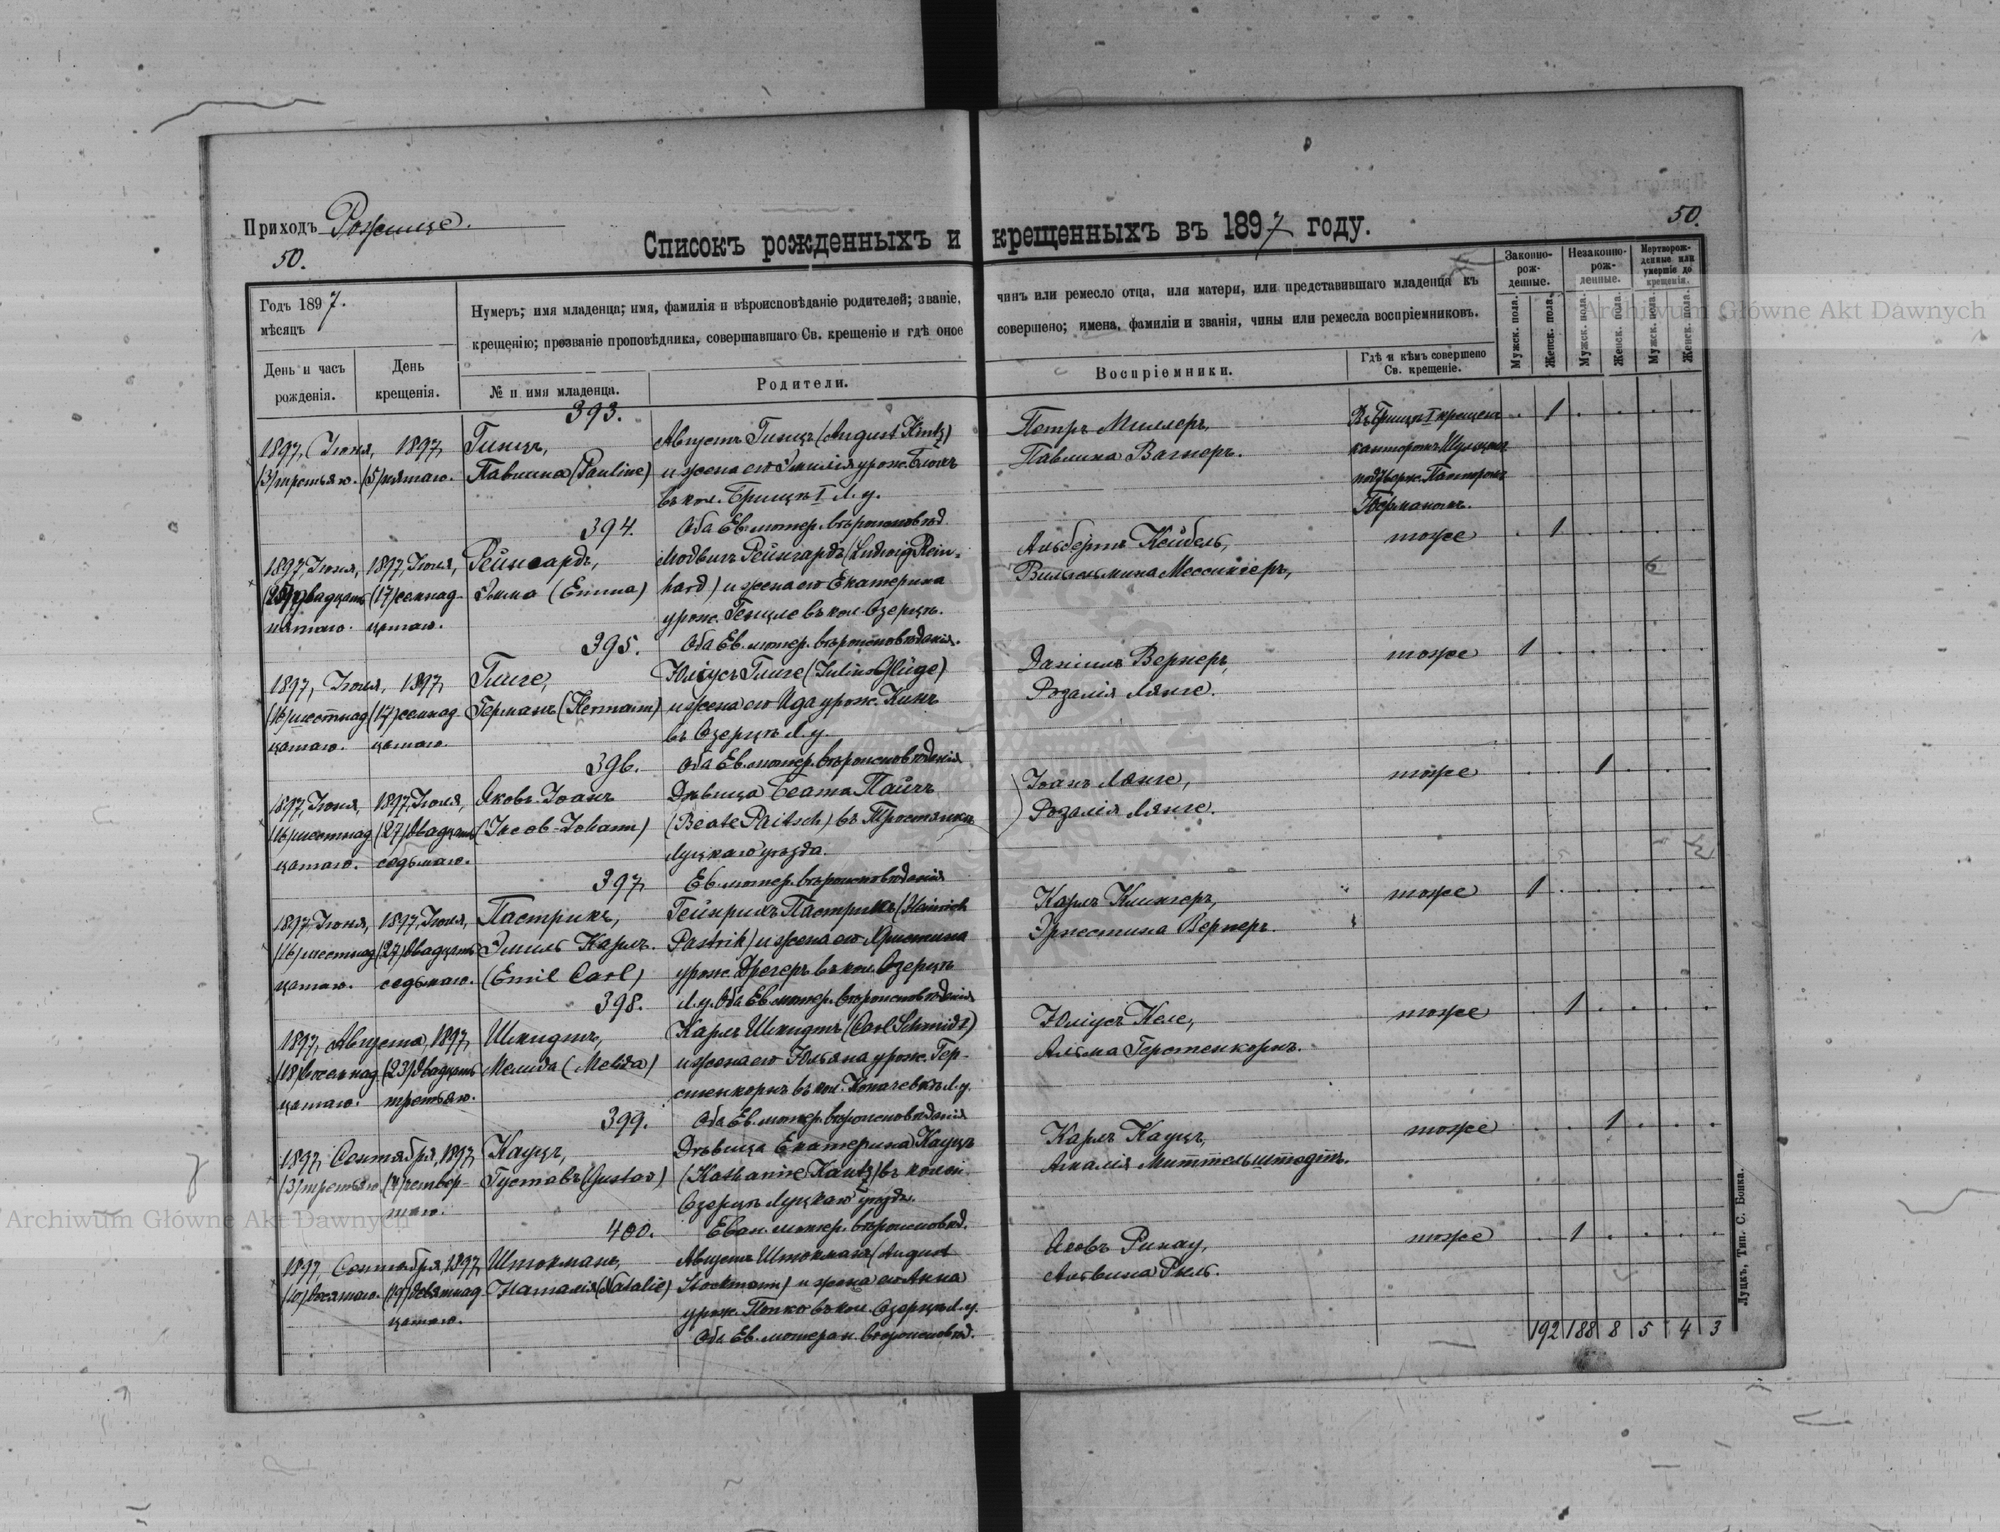 Приходъ Рожище.
50.
50.
Списокъ рожденныхъ и крещенныхъ въ 1897 году.
Годъ 1897.
мѣсяцъ
День и часъ рожденія.
День крещенія.
Нумеръ; имя младенца; имя, фамилія и вѣроисповѣданіе родителей; званіе, чинъ или ремесло отца, или матери, или представившаго младенца къ
крещенію; прозваніе проповѣдника, совершавшаго Св. крещеніе и гдѣ оное совершено; имена, фамиліи и званія, чины или ремесла воспріемниковъ.
№ и имя младенца.
Родители.
Воспріемники.
Гдѣ и кѣмъ совершено Св. крещеніе.
Законно-рож-денные.
Незаконно-рож-денные.
Мертворож-денные или умершіе до крещенія.
Мужск. пола.
Женск. пола.
Мужск. пола.
Женск. пола.
Мужск. пола.
Женск. пола.
393.
1897, Іюня, 1897,
(3) третьяго. (5) пятаго.
Павлина (Pauline)
Августъ Гинцъ (August Hintz)
и жена его Эмилія урож.
въ кол. I Л. у.
Оба Ев. лютер. вѣроисповѣд.
Петръ Миллеръ,
Павлина Вагнеръ.
I крещенъ
канторомъ
подтверж. Пасторомъ
Керманомъ.
1
394.
1897, Іюня, 1897, Іюля,
(17) семнад-
пятаго. цатаго.
Рейнгардъ,
Эмма (Emma)
Людвигъ Рейнгардъ (Ludwig Rein-
hard) и жена его Екатерина
урож. въ кол. Озерцѣ.
Оба Ев. лютер. вѣроисповѣданія.
Альбертъ Кейбель,
Вильгельмина Мессингеръ,
тоже
1
395.
1897, Іюня, 1897,
(16) шестнад (17) семнад
цатаго. цатаго.
Глиге,
Германъ (Hermann)
Юліусъ Глиге (Julius Glüge)
и жена его Ида урож. Кинъ
въ Озерцѣ Л. у.
Оба Ев. лютер. вѣроисповѣданія
Даніилъ Вернеръ,
Розалія Лянге.
тоже
1
396.
1897, Іюня, 1897, Іюля,
(16) шестнад (27) двадцать
цатаго. седьмаго.
Яковъ-Іоанъ
(Jacob-Johann)
Дѣвица Беата Пайчъ
(Beate Paitsch) въ Тростянкѣ
Луцкаго уѣзда.
Ев. лютер. вѣроисповѣданія
Іоанъ Лянге,
Розалія Лянге.
тоже
1
397,
1897, Іюня, 1897, Іюля,
(16) шестнад (27) двадцать
цатаго. седьмаго.
Пастрикъ,
Эмиль Карлъ.
(Emil Carl)
Гейнрихъ Пастрикъ (Heinrich
Pastrik) и жена его Христина
урож. Дрегеръ въ кол. Озерцѣ
Л. у. Оба Ев. лютер. вѣроисповѣданія
Карлъ Клингеръ,
Эрнестина Вернеръ.
тоже
1
398.
1897, Августа, 1897,
(18) восемнад (23) двадцать
цатаго. третьяго.
Шмидтъ,
Мелида (Melida)
Карлъ Шмидтъ (Carl Schmidt)
и жена его Юльяна урож. Гер-
стенкорнъ въ кол. Копачевкѣ Л. у.
Оба Ев. лютер. вѣроисповѣданія
Юліусъ Келе,
Альма Герстенкорнъ.
тоже
1
399.
1897, Сентября, 1897,
(3) третьяго (4) четвер-
таго.
Кауцъ,
Густавъ (Gustav)
Дѣвица Екатерина Кауцъ
(Katharine Kautz) въ колон.
Озерцѣ Луцкаго уѣзда.
Еван. лютер. вѣроисповѣд.
Карлъ Кауцъ,
Амалія Миттельштедтъ.
тоже
1
400.
1897, Сентября, 1897,
(10) десятаго. (19) девятнад
цатаго.
Штокманъ,
Наталія (Natalie)
Августъ Штокманъ (August
Stockmann) и жена его Анна
урож. Попко въ кол. Озерцѣ Л. у.
Оба Ев. лютеран. вѣроисповѣд.
Яковъ Ринау,
Альвина Рыль.
тоже
1
192 188 8 5 4 3
Луцкъ, Тип. С. Бонка.
Archiwum Główne Akt Dawnych
Archiwum Główne Akt Dawnych